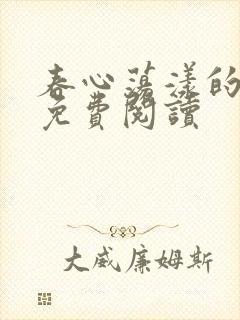 春心蕩漾的
免費閱讀
大威廉姆斯